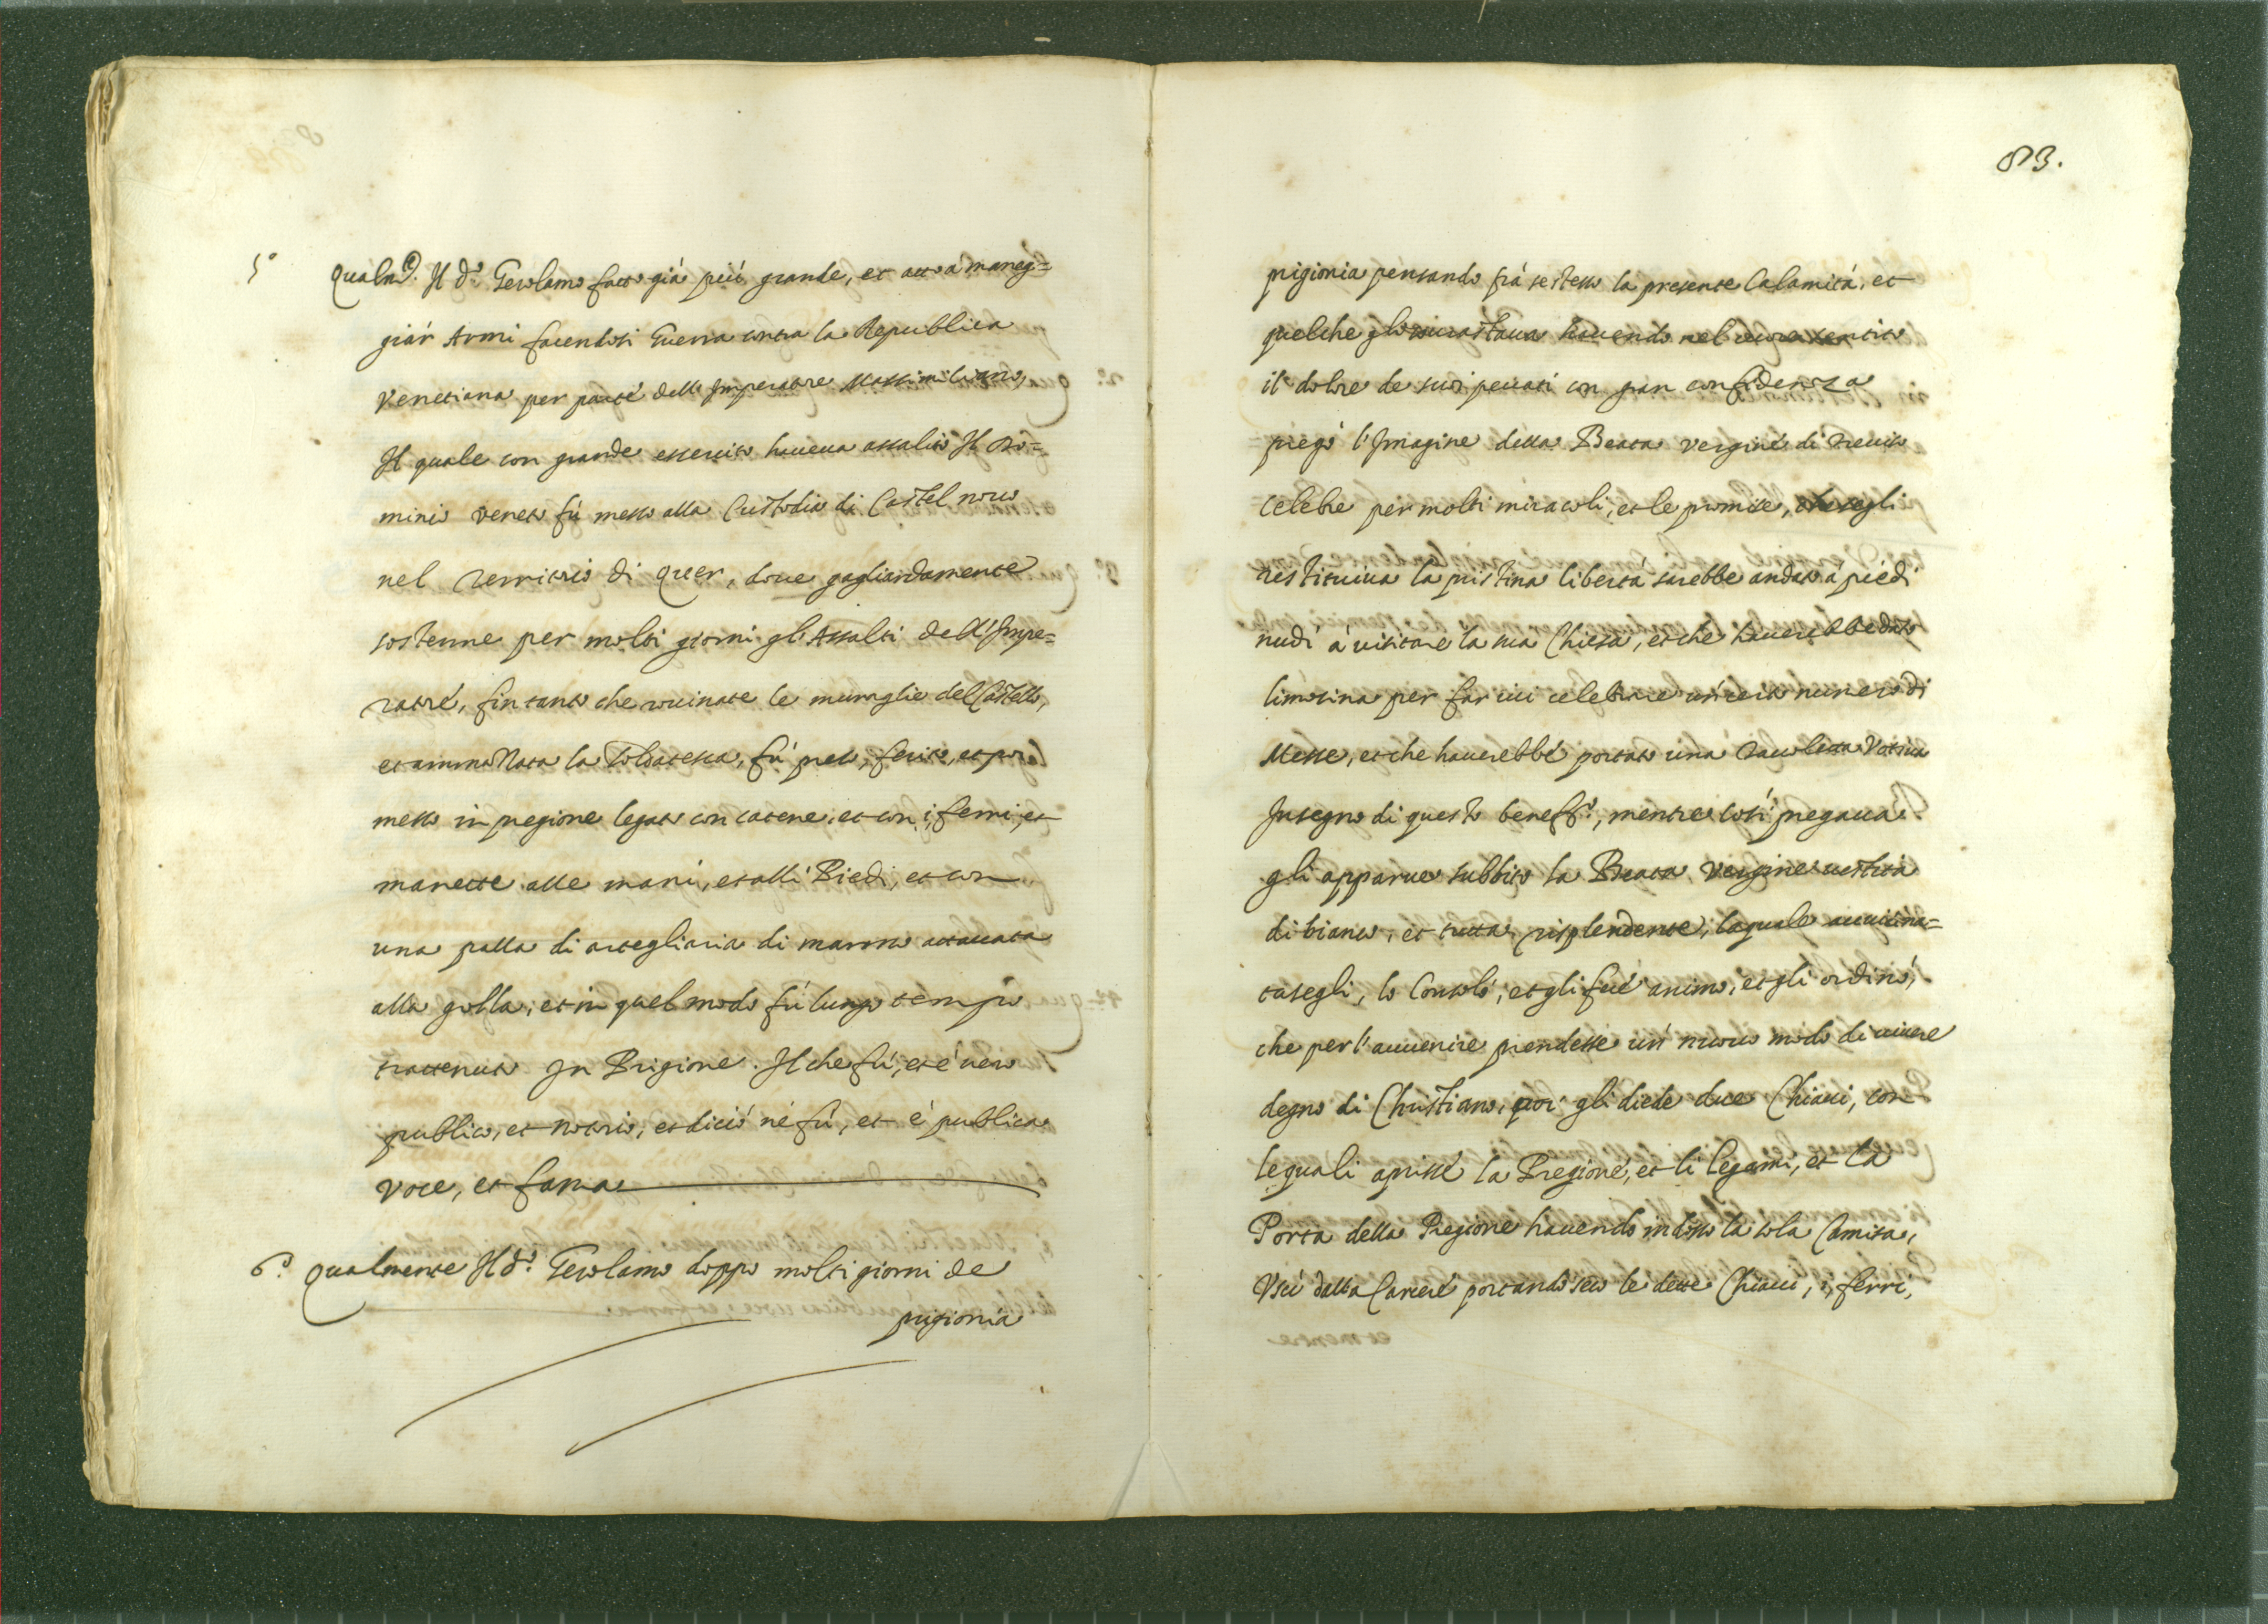 5º Qualm.e Il d.º Gerolamo fatto già più grande, et atto à manegi=
giár Armi facendosi Guerra contra la Republica
Venetiana per parte dello Imperatore Massimiliano,
Il quale con grande essercito haueua assalito Il Do=
minio Veneto fù messo alla Custodia di Castel nouo
nel Territorio di Quer, doue gagliardamente
sostenne per molti giorni gl'Assalti dell'Impe=
ratore, fin tanto che rouinate le muraglie del Castello,
et ammazzata la soldatesca, fù preso, ferito, et poi
messo in pregione legato con catene, et con i, ferri, et
manette alle mani, et alli Piedi, et con
una palla di artegliaria di marmo attaccata
alla golla, et in quel modo fù lungo tempo
trattenuto In Prigione. Il che fù, et é uero
publico, et notorio, et diciò né fù, et é publica
voce, et fama
6º Qualmente Il d.º Gerolamo doppo molti giorni de
prigionia
83.
prigionia pensando frà se stesso la presente Calamità, et
quelche gli sourastaua hauendo nel cuore sentito
il dolore de suoi peccati con gran confidenza
pregò l'Imagine della Beata Vergine di Treuiso
celebre per molti miracoli, et le promise, che se gli
restituiua la pristina libertà sarebbe andato à piedi
nudi à visitare la sua Chiesa, et che hauerebbe dato
limosina per far iui celebrare un certo numero di
Messe, et che hauerebbe portato una Tauoletta Votiua
In segno di questo beneff.º, mentre così pregaua
gli apparue subbito la Beata Vergine uestita
di bianco, et tutta risplendente, laquale auuicina=
tasegli, lo Consolò, et gli fece animo, et gli ordinò,
che per l'auuenire prendesse un nuouo modo di uiuere
degno di Christiano, poi gli diede due Chiaui, con
lequali aprisse la Pregione, et li legami, et la
Porta della Pregione hauendo indosso la sola Camisa,
Uscì dalla Carcere portando seco le dette Chiaui, i, ferri,
et mentre